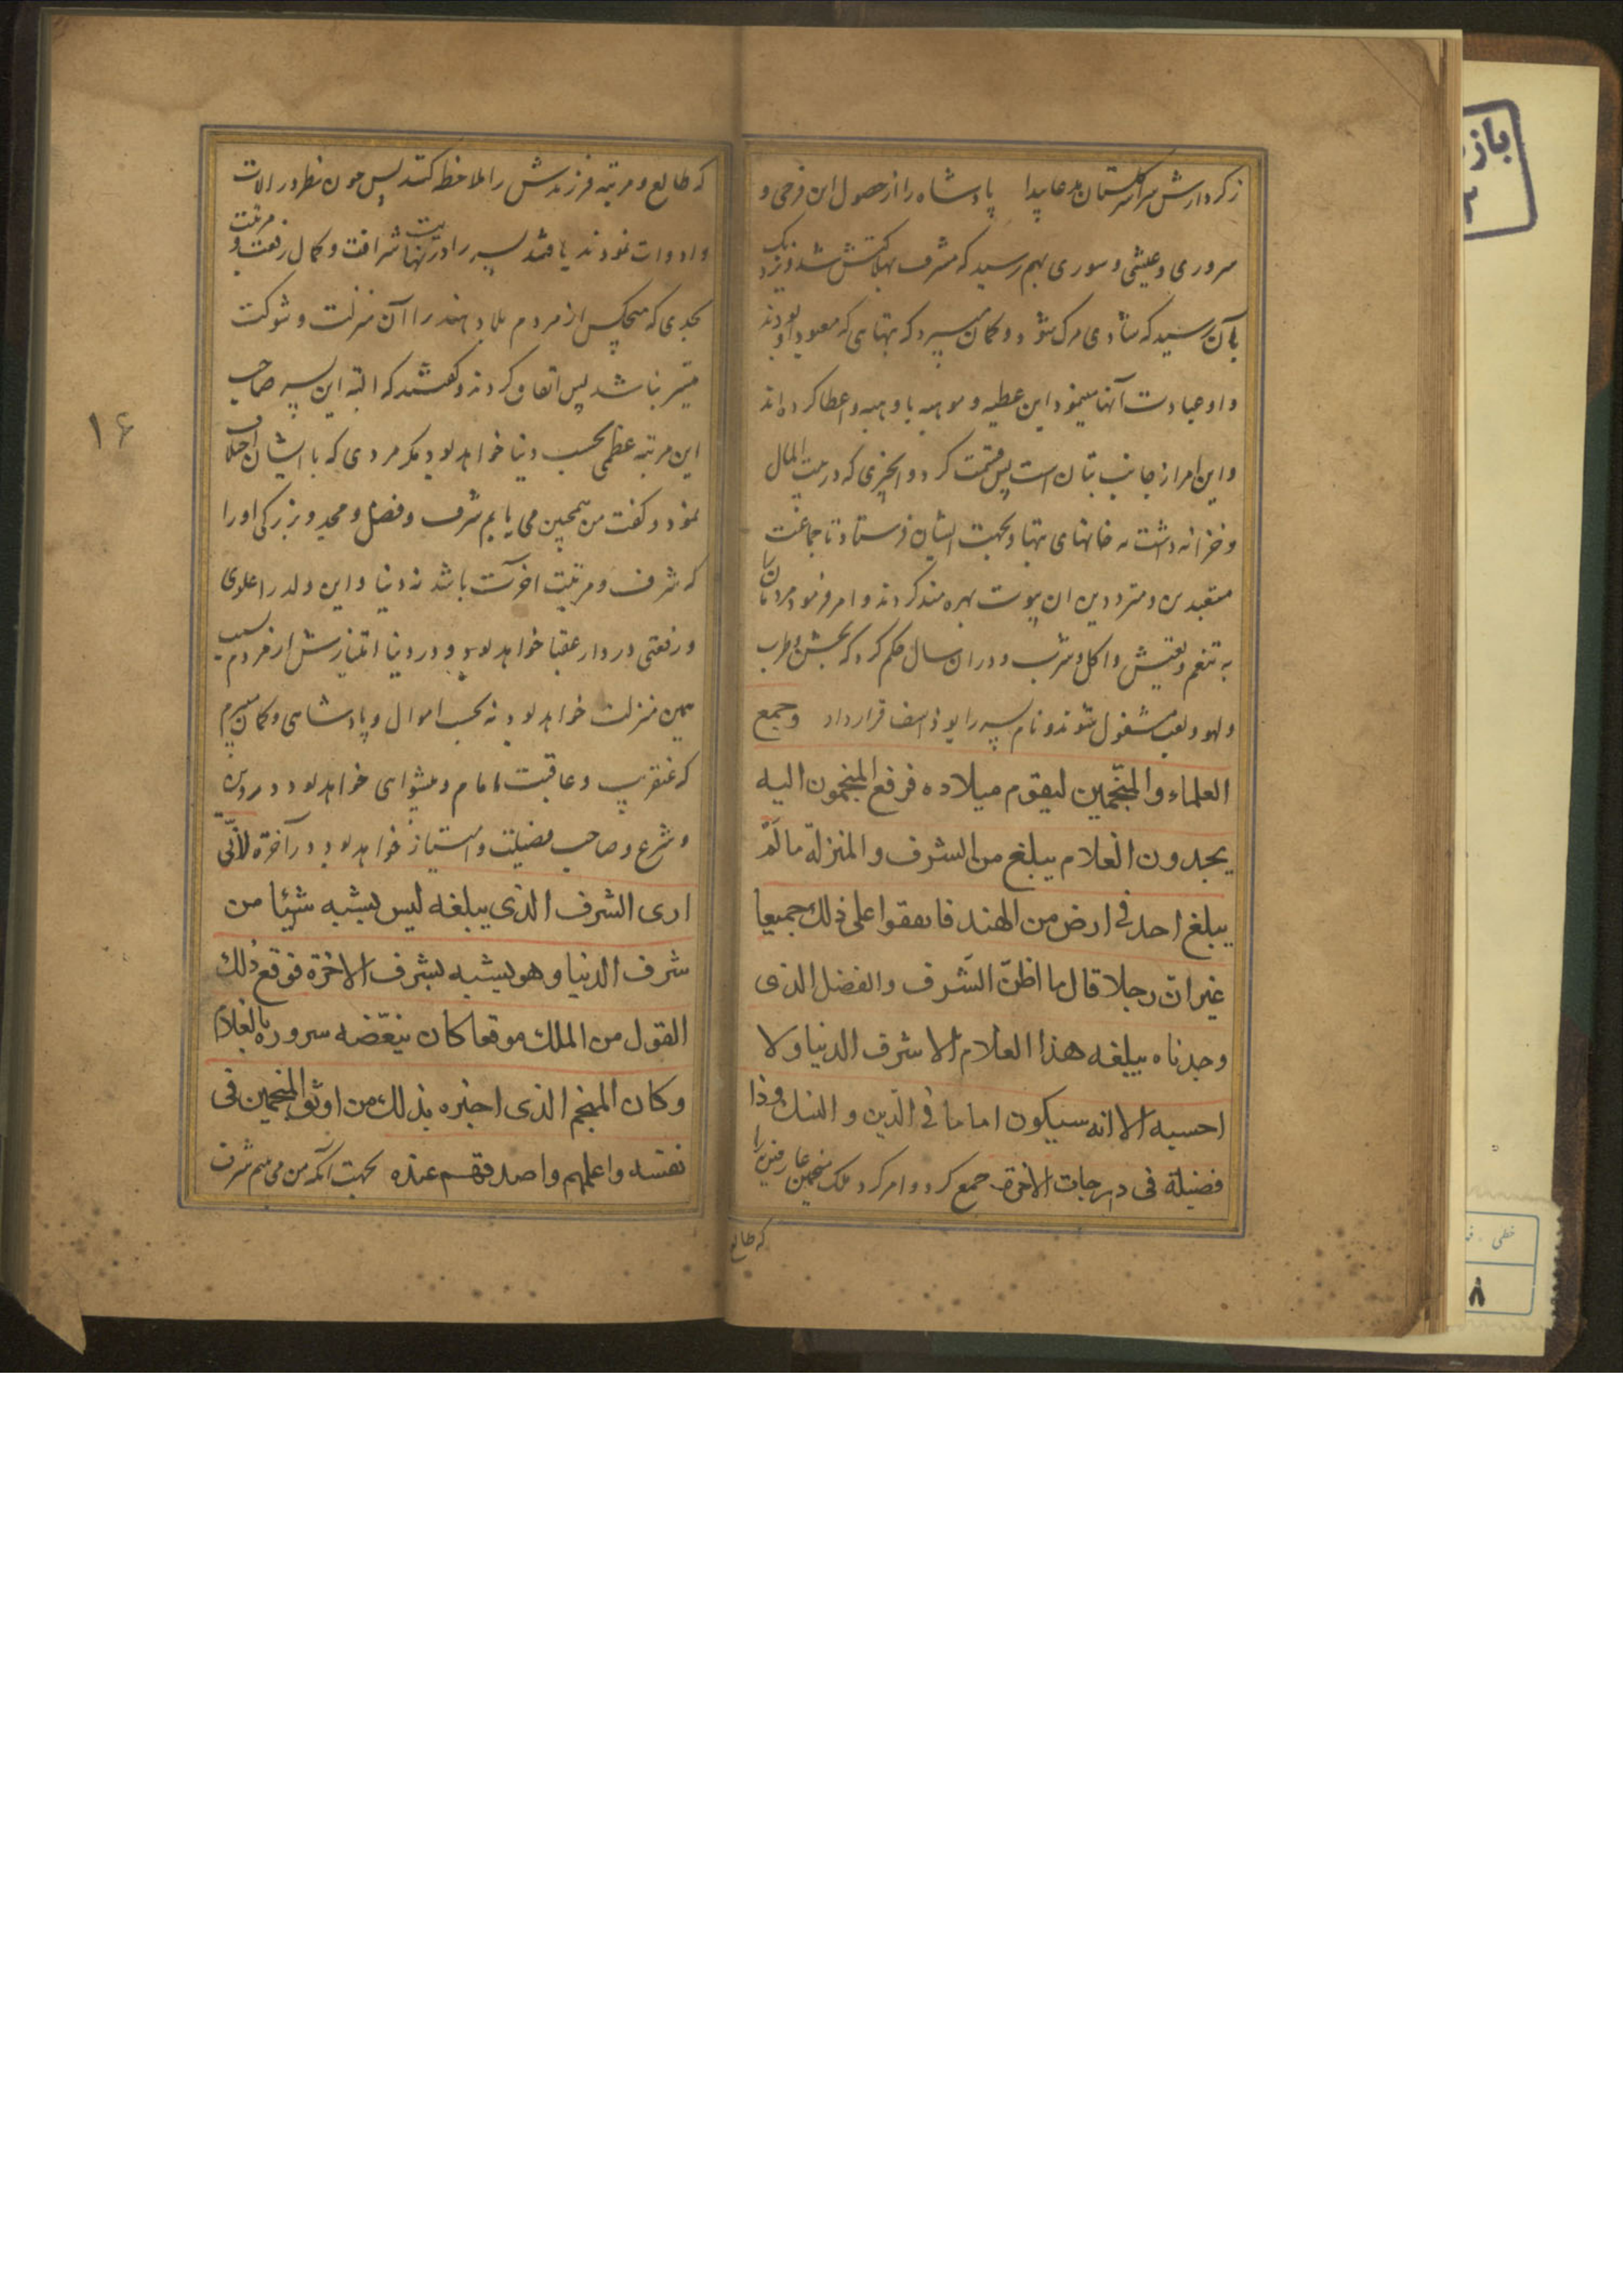 ز کردارش سراسر گلستان مدعا پیدا پادشاه را از حصول این فرحی و
سروری و عیشی و سوری بهم رسید که مشرف بهلاکتش شد و نزدیک
بآن رسید که شادی مرک شود و گمان میبرد که بتهایی که معبود او بودند
و او عبادت آنها مینمود این عطیه و موهبه باو هبه و اعطا کرده اند
و این امر از جانب بتان است پس قسمت کرد و انچیزی که در بیت المال
و خزانه داشت به خانهای بتها و بجهت ایشان فرستاد تا جماعت
متعبدین و مترددین ان بیوت بهره مند کردند و امر فرمود مردمان را
به تنعم و تعیش و اکل و شرب و در ان سال حکم کرد که بجشن و طرب
و لهو و لعب مشغول شوند و نام پسر را یوذاسف قرارداد وجمع
العلماء والمنجّمین لیقوم میلاده فرفع المنجمون الیه
یجدون الغلام یبلغ من الشرف والمنزلة مالم
یبلغ احد فی ارض من الهند فاتفقوا علی ذلك جمیعا
غیر انّ رجلا قال ما اظنّ الشرف والفضل الذی
وجدناه یبلغه هذا الغلام الا شرف الدنیا ولا
احسبه الا انه سیکون اماما فی الدّین والنسك وذا
فضیلة فی درجات الاخرة جمع کرد و امر کرد ملک منجمین عارفین را
که طالع
که طالع و مرتبه فرزندش را ملاحظه کنند پس چون نظر در الات
و ادوات نمودند یافتند پسر را در نهایت شرافت و کمال رفعت و مرتبت
بحدی که هیچکس از مردم بلاد هند را آن منزلت و شوکت
میسّر نباشد پس اتفاق کردند و گفتند که البته این پسر صاحب
این مرتبه عظمی بحسب دنیا خواهد بود مکر مردی که با ایشان اختلاف
نمود و گفت من همچنین می یابم شرف و فضل و مجد و بزرگی او را
که شرف و مرتبت اخرت باشد نه دنیا و این ولد را علوی
و رفعتی در دار عقبا خواهد بود و در دنیا امتیازش از مردم بسبب
همین منزلت خواهد بود نه بحسب اموال و پادشاهی و گمان میبرم
که عنقریب و عاقبت امام و پیشوای خواهد بود در دین
و شرع و صاحب فضیلت و امتیاز خواهد بود در آخرة لانّی
اری الشرف الذی یبلغه لیس یشبه شیئا من
شرف الدنیا وهو یشبه بشرف الاخرة فوقع ذلك
القول من الملك موقعا کان ینغّضه سروره بالغلام
وکان المنجم الذی اخبره بذلك من اوثق المنجمین فی
نفسه واعلمهم واصدقهم عنده بجهت آنکه من می بینم شرف
۱۶
باز
خطی
۸